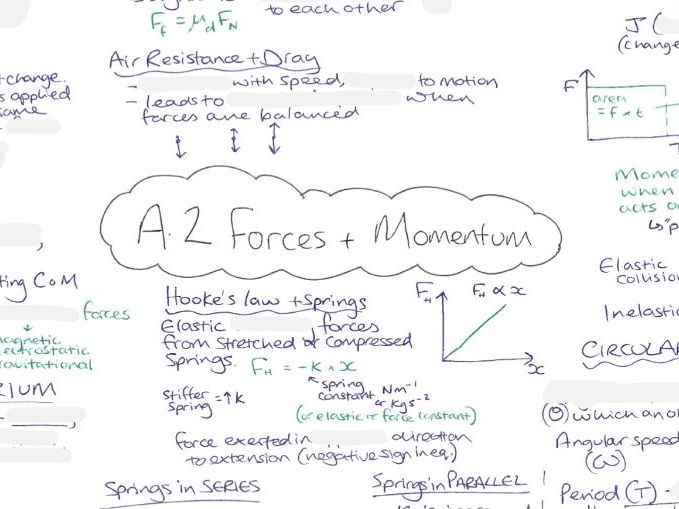 to each other
F_f = μ_d F_N
Air Resistance + Drag
- with speed, to motion
- leads to when
forces are balanced
change.
s applied
same
J (
(change
F
area
= F × t
A.2 Forces + Momentum
Mome
when
acts o
↳ "p
Elastic
Collision
Inelastic
CIRCULAR
ting CoM
forces
magnetic
electrostatic
gravitational
IUM
Hooke's law + Springs
Elastic forces
from stretched or compressed
springs. F_H = -k · x
spring
constant Nm⁻¹
or kgs⁻²
(or elastic or force constant)
Stiffer = ↑k
Spring
force exerted in direction
to extension (negative sign in eq.)
F_H
F_H ∝ x
x
Springs in SERIES
Springs in PARALLEL
(θ) which an o
Angular speed
(ω)
Period (T) -